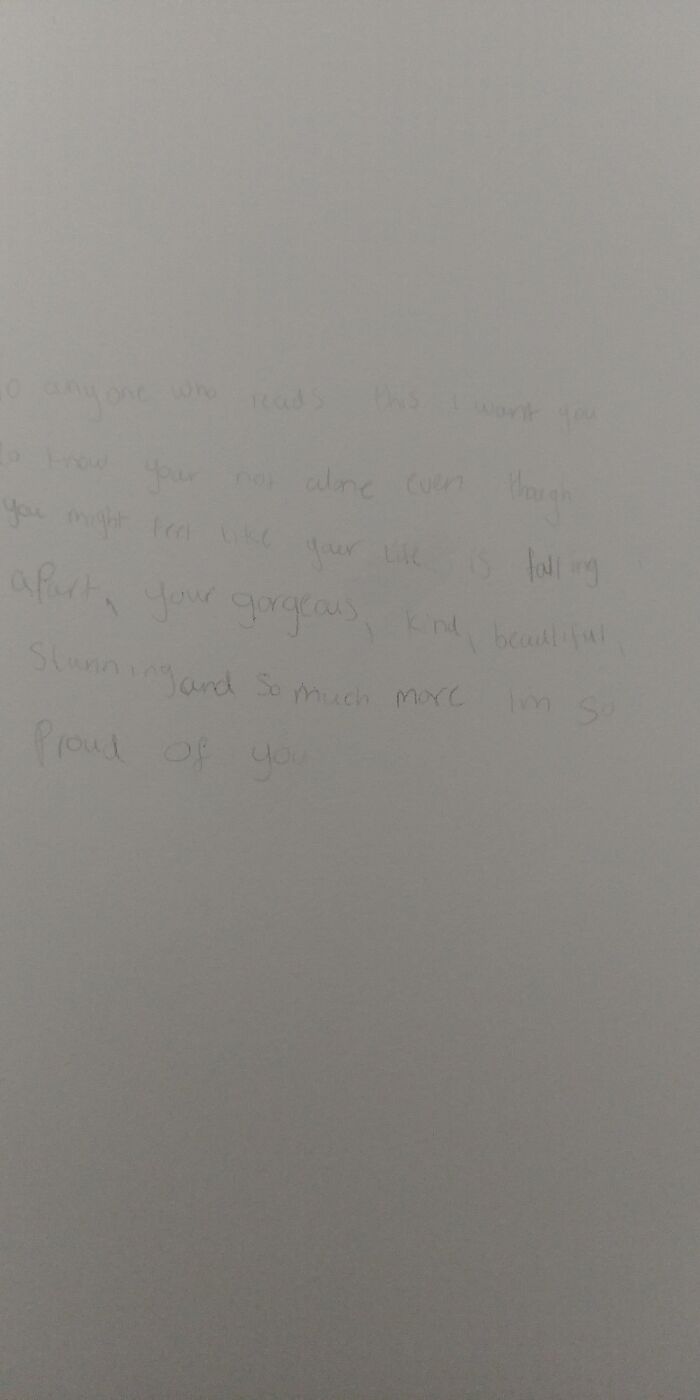 To anyone who reads this I want you
to know your not alone even though
you might feel like your life is falling
apart, your gorgeous, kind, beautiful,
Stunning and So much more Im So
Proud of you